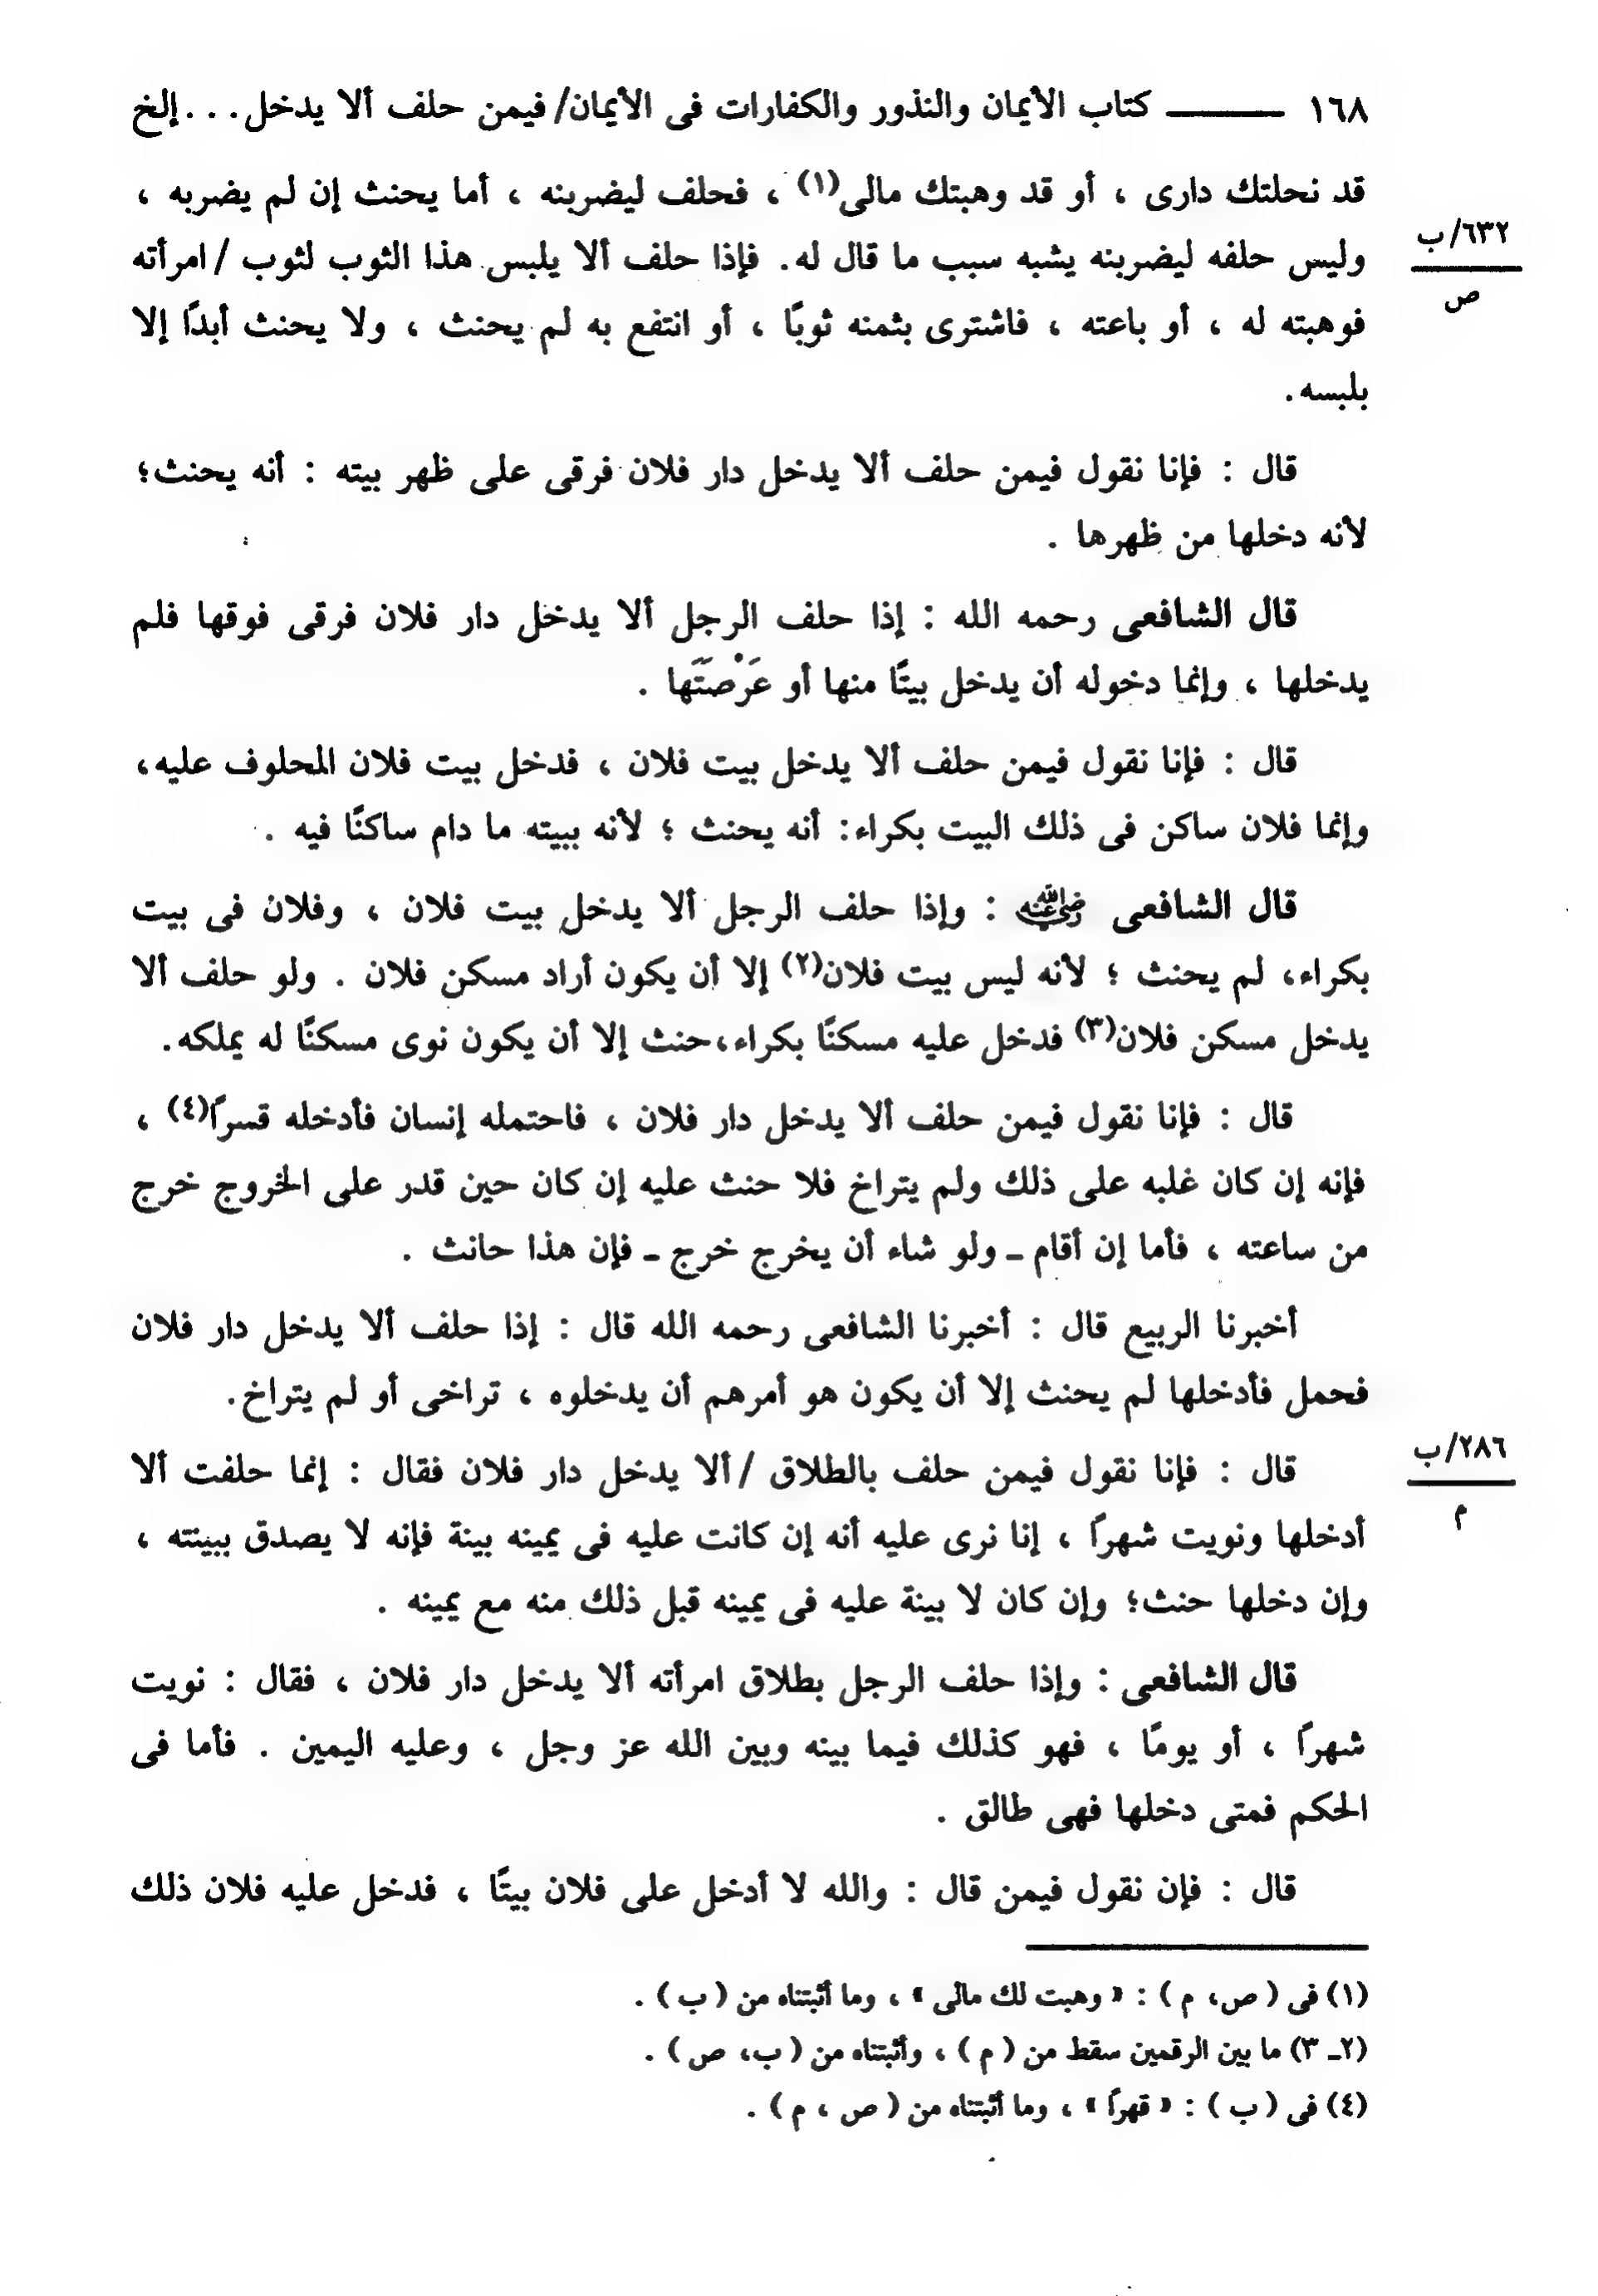 ١٦٨ ——— كتاب الأيمان والنذور والكفارات فى الأيمان/ فيمن حلف ألا يدخل . . . إلخ
قد نحلتك دارى ، أو قد وهبتك مالى(١) ، فحلف ليضربنه ، أما يحنث إن لم يضربه ،
٦٣٢/ب
ص
وليس حلفه ليضربنه يشبه سبب ما قال له. فإذا حلف ألا يلبس هذا الثوب لثوب / امرأته
فوهبته له ، أو باعته ، فاشترى بثمنه ثوبًا ، أو انتفع به لم يحنث ، ولا يحنث أبدًا إلا
بلبسه.
قال : فإنا نقول فيمن حلف ألا يدخل دار فلان فرقى على ظهر بيته : أنه يحنث؛
لأنه دخلها من ظهرها .
قال الشافعى رحمه الله : إذا حلف الرجل ألا يدخل دار فلان فرقى فوقها فلم
يدخلها ، وإنما دخوله أن يدخل بيتًا منها أو عَرْصَتَها .
قال : فإنا نقول فيمن حلف ألا يدخل بيت فلان ، فدخل بيت فلان المحلوف عليه،
وإنما فلان ساكن فى ذلك البيت بكراء: أنه يحنث ؛ لأنه ببيته ما دام ساكنًا فيه .
قال الشافعى رضي الله عنه : وإذا حلف الرجل ألا يدخل بيت فلان ، وفلان فى بيت
بكراء، لم يحنث ؛ لأنه ليس بيت فلان(٢) إلا أن يكون أراد مسكن فلان . ولو حلف ألا
يدخل مسكن فلان(٣) فدخل عليه مسكنًا بكراء،حنث إلا أن يكون نوى مسكنًا له يملكه.
قال : فإنا نقول فيمن حلف ألا يدخل دار فلان ، فاحتمله إنسان فأدخله قسرًا(٤) ،
فإنه إن كان غلبه على ذلك ولم يتراخ فلا حنث عليه إن كان حين قدر على الخروج خرج
من ساعته ، فأما إن أقام ـ ولو شاء أن يخرج خرج ـ فإن هذا حانث .
أخبرنا الربيع قال : أخبرنا الشافعى رحمه الله قال : إذا حلف ألا يدخل دار فلان
فحمل فأدخلها لم يحنث إلا أن يكون هو أمرهم أن يدخلوه ، تراخى أو لم يتراخ.
٢٨٦/ب
م
قال : فإنا نقول فيمن حلف بالطلاق / ألا يدخل دار فلان فقال : إنما حلفت ألا
أدخلها ونويت شهرًا ، إنا نرى عليه أنه إن كانت عليه فى يمينه بينة فإنه لا يصدق ببينته ،
وإن دخلها حنث؛ وإن كان لا بينة عليه فى يمينه قبل ذلك منه مع يمينه .
قال الشافعى : وإذا حلف الرجل بطلاق امرأته ألا يدخل دار فلان ، فقال : نويت
شهرًا ، أو يومًا ، فهو كذلك فيما بينه وبين الله عز وجل ، وعليه اليمين . فأما فى
الحكم فمتى دخلها فهى طالق .
قال : فإن نقول فيمن قال : والله لا أدخل على فلان بيتًا ، فدخل عليه فلان ذلك
(١) فى ( ص، م ) : « وهبت لك مالى » ، وما أثبتناه من ( ب ) .
(٢ـ ٣) ما بين الرقمين سقط من ( م ) ، وأثبتناه من ( ب، ص ) .
(٤) فى ( ب ) : « قهرًا » ، وما أثبتناه من ( ص ، م ) .